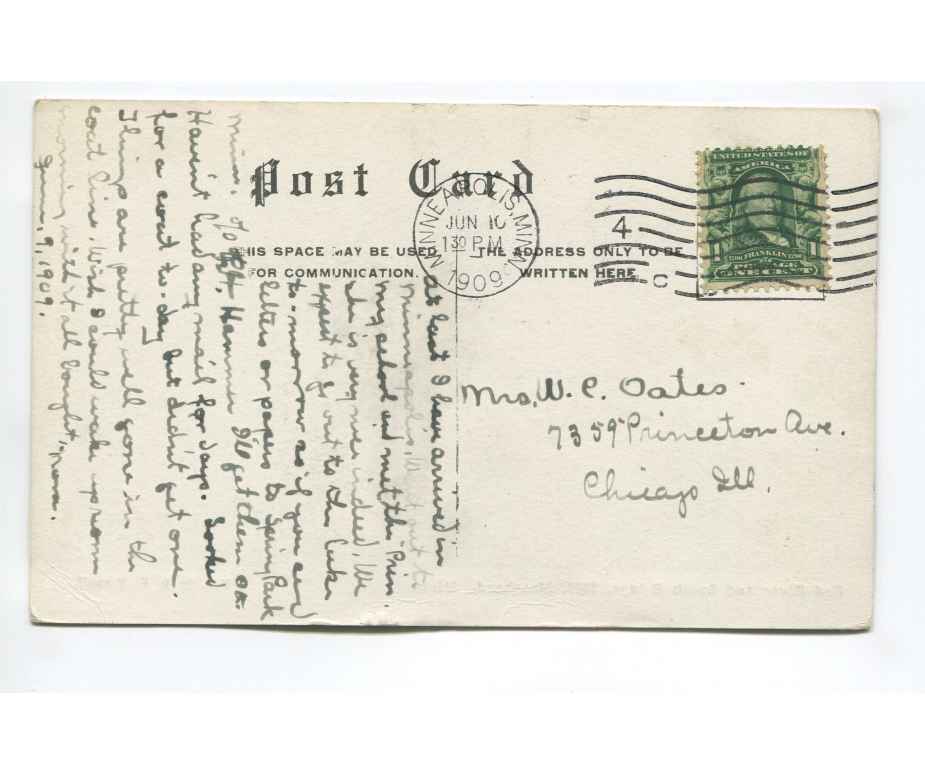 Post Card
THIS SPACE MAY BE USED
FOR COMMUNICATION.
THE ADDRESS ONLY TO BE
WRITTEN HERE
MINNEAPOLIS, MINN.
JUN 10
1 30 P.M.
1909
4
C
UNITED STATES OF
AMERICA
FRANKLIN
POSTAGE
1 ONE CENT 1
Mrs. W. C. Oates.
7359 Princeton Ave.
Chicago Ill.
At last I have arrived in
Minneapolis. Went out to
my school and met the Prin
she is very nice indeed. We
expect to go out to the Lake
to-morrow so if you send
letters or papers to Spring Park
Minn. H. Hammer I'll get them OK.
Haven't had any mail for days. Looked
for a coat to-day but didn't get one.
Things are pretty well gone in the
coat line. Wish I could wake up som
morning with it all bought. Nora.
June, 9, 1909.